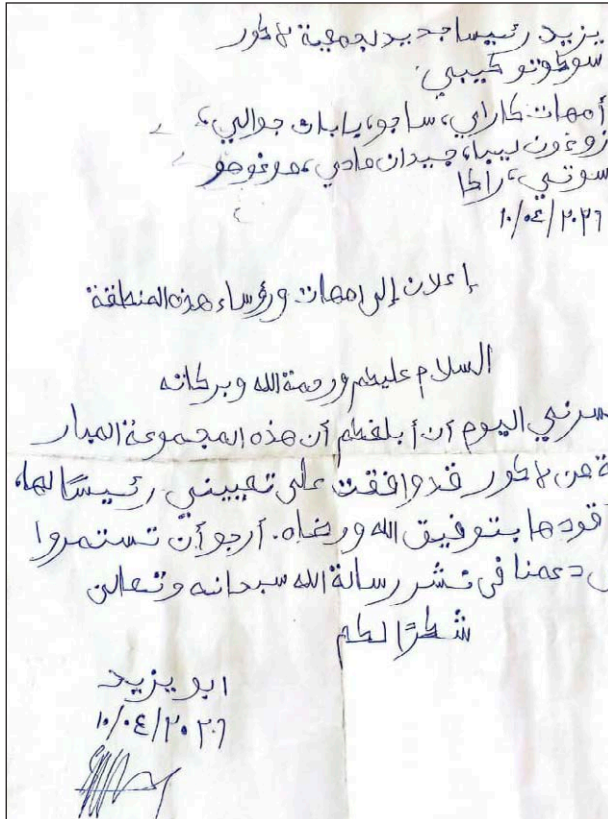 يزيد رئيسا جديد لجمعية لاكور
سوكوتو كيبي
أمهات كاراي، ساجو، يابات جوالي،
روغون ليبا، جيدان مادي، مرغوهو
سوتي، راكا
١٠/٠٤/٢٠٢٦
إعلان إلى امهات ورؤساء هذه المنطقة
السلام عليكم ورحمة الله وبركاته
سرني اليوم أن أبلغكم أن هذه المجموعة المبار
ة من لاكور قد وافقت على تعييني رئيسًا لها،
قودها بتوفيق الله ورضاه. أرجو أن تستمروا
دعمنا في نشر رسالة الله سبحانه وتعالى
شكرًا لكم
ابو يزيد
١٠/٠٤/٢٠٢٦